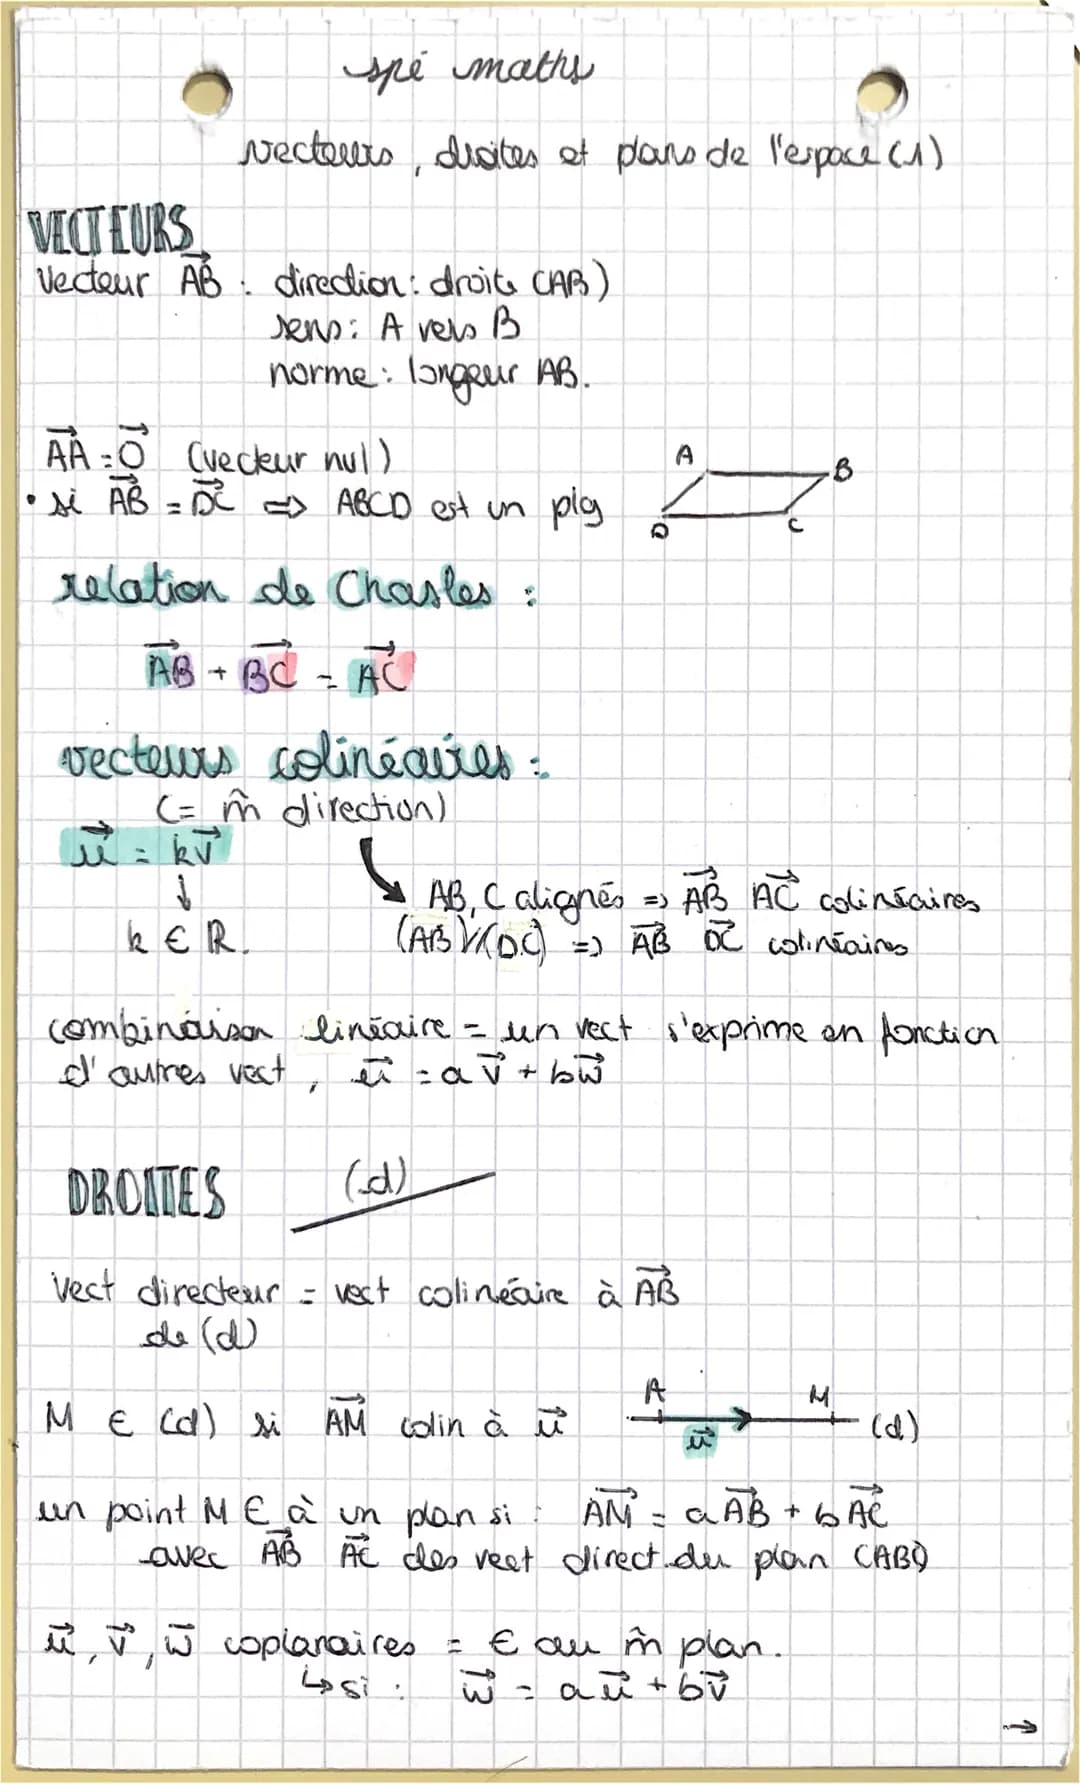 spé maths
vecteurs, droites et plans de l'espace (1)
VECTEURS
Vecteur AB⃗ : direction : droite (AB)
sens : A vers B
norme : longeur AB.
AA⃗ = 0⃗ (vecteur nul)
• si AB⃗ = DC⃗ => ABCD est un plg
A B
D C
relation de Chasles :
AB⃗ + BC⃗ = AC⃗
vecteurs colinéaires :
(= m̂ direction)
u⃗ = kv⃗
↓
k ∈ R.
AB, C alignés => AB⃗ AC⃗ colinéaires
(AB)//(DC) => AB⃗ DC⃗ colinéaires
combinaison linéaire = un vect s'exprime en fonction
d'autres vect, u⃗ = a v⃗ + b w⃗
DROITES (d)
Vect directeur = vect colinéaire à AB⃗
de (d)
M ∈ (d) si AM⃗ colin à u⃗
A M
u⃗ (d)
un point M ∈ à un plan si : AM⃗ = a AB⃗ + b AC⃗
avec AB⃗ AC⃗ des vect direct.du plan (ABC)
u⃗, v⃗, w⃗ coplanaires = ∈ au m̂ plan.
↳ si : w⃗ = a u⃗ + b v⃗
→